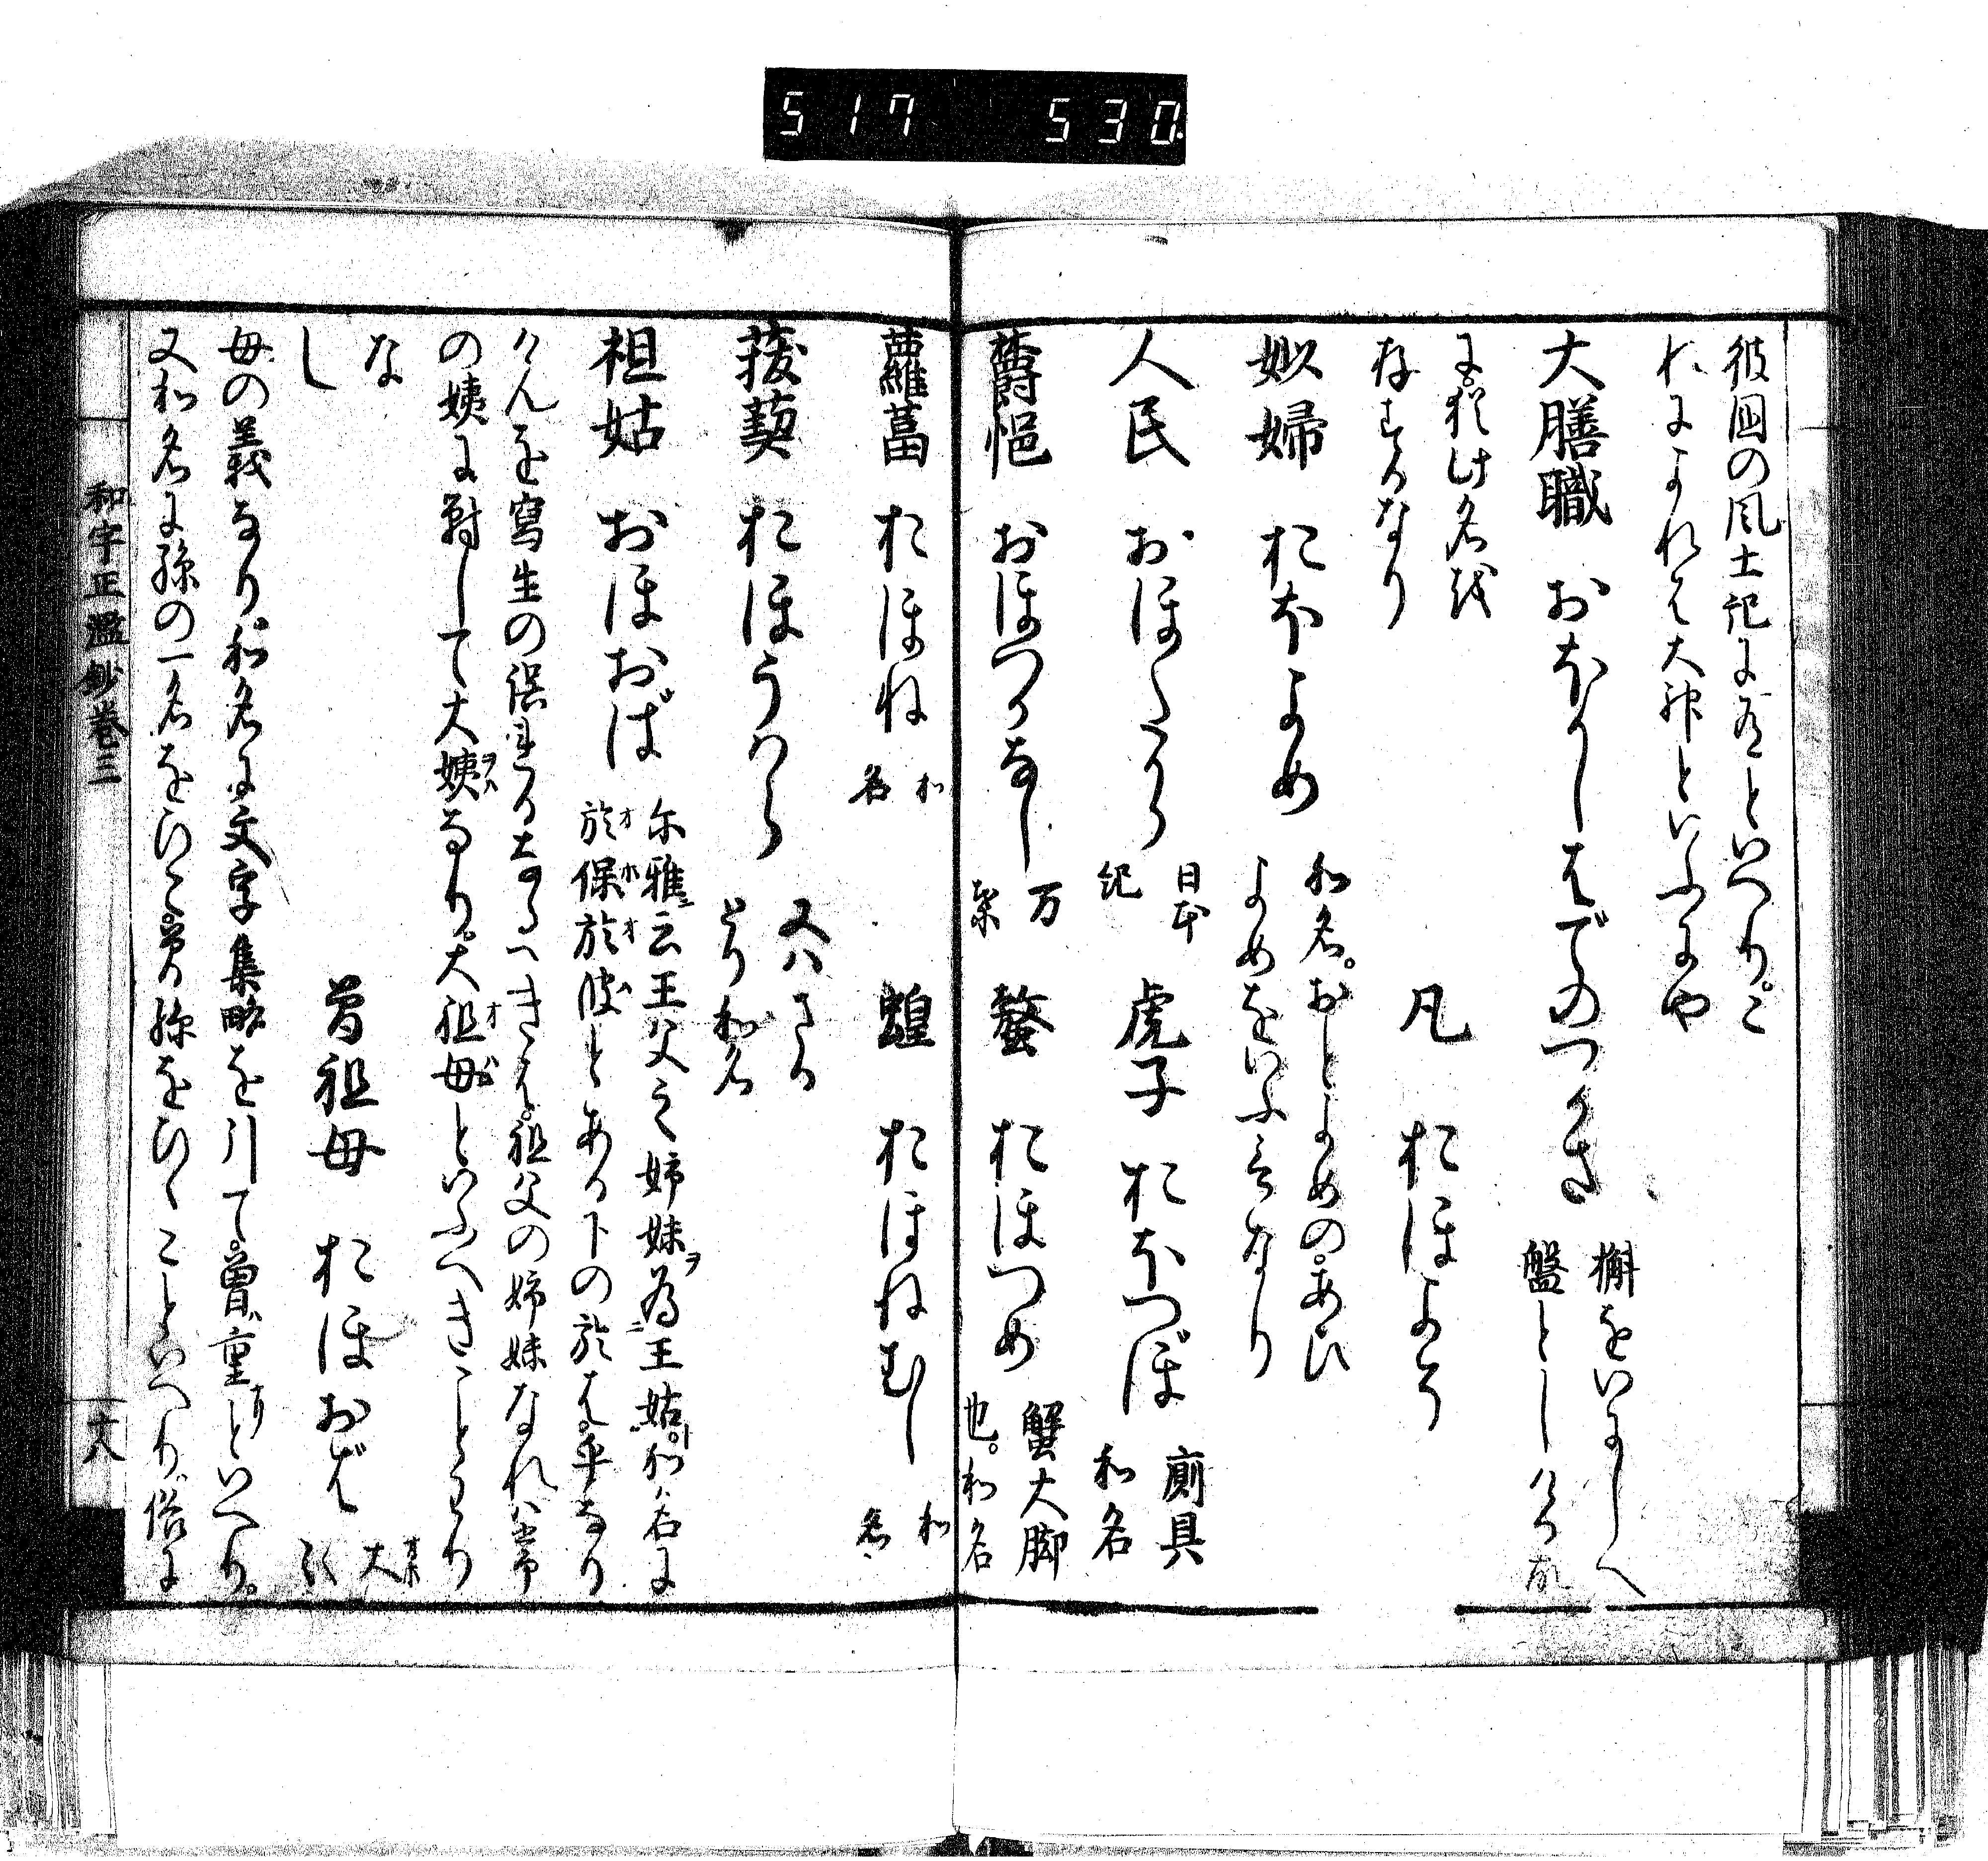 517 530
彼國の風土記に有といへり。こ
れによれは大神といふにや
大膳職 おほかしはでのつかさ 槲をいにしへ
盤としける故
に。猶此名残
存するなり 凡 おほよそ
姒婦 おほよめ 和名。おとよめの。あひ
よめをいふ言なり
人民 おほんたから 日本
紀 虎子 おほつぼ 廁具
和名
欝悒 おほつかなし 万
葉 螯 おほつめ 蟹大脚
也。和名
蘿菖 おほね 和
名 蝗 おほねむし 和
名
菝葜 おほうはら 又ハさる
とり 和名
祖姑 おほおば 尓雅云王父之姉妹ヲ為王姑。和名に
於保於波とある下の於は。乎なり
けんを寫生の誤まれるなるへきは。祖父の姉妹なれハ常
の姨に對して大姨なり。大祖母といふへきことわり
な
し 曾祖母 おほおば 大
祖
母の義なり。和名に文字集略を引て。曾ハ重なりといへり。
又和名に孫の一名をひこ。曾孫をひゝこといへり。俗に
和字正濫鈔卷三 十八